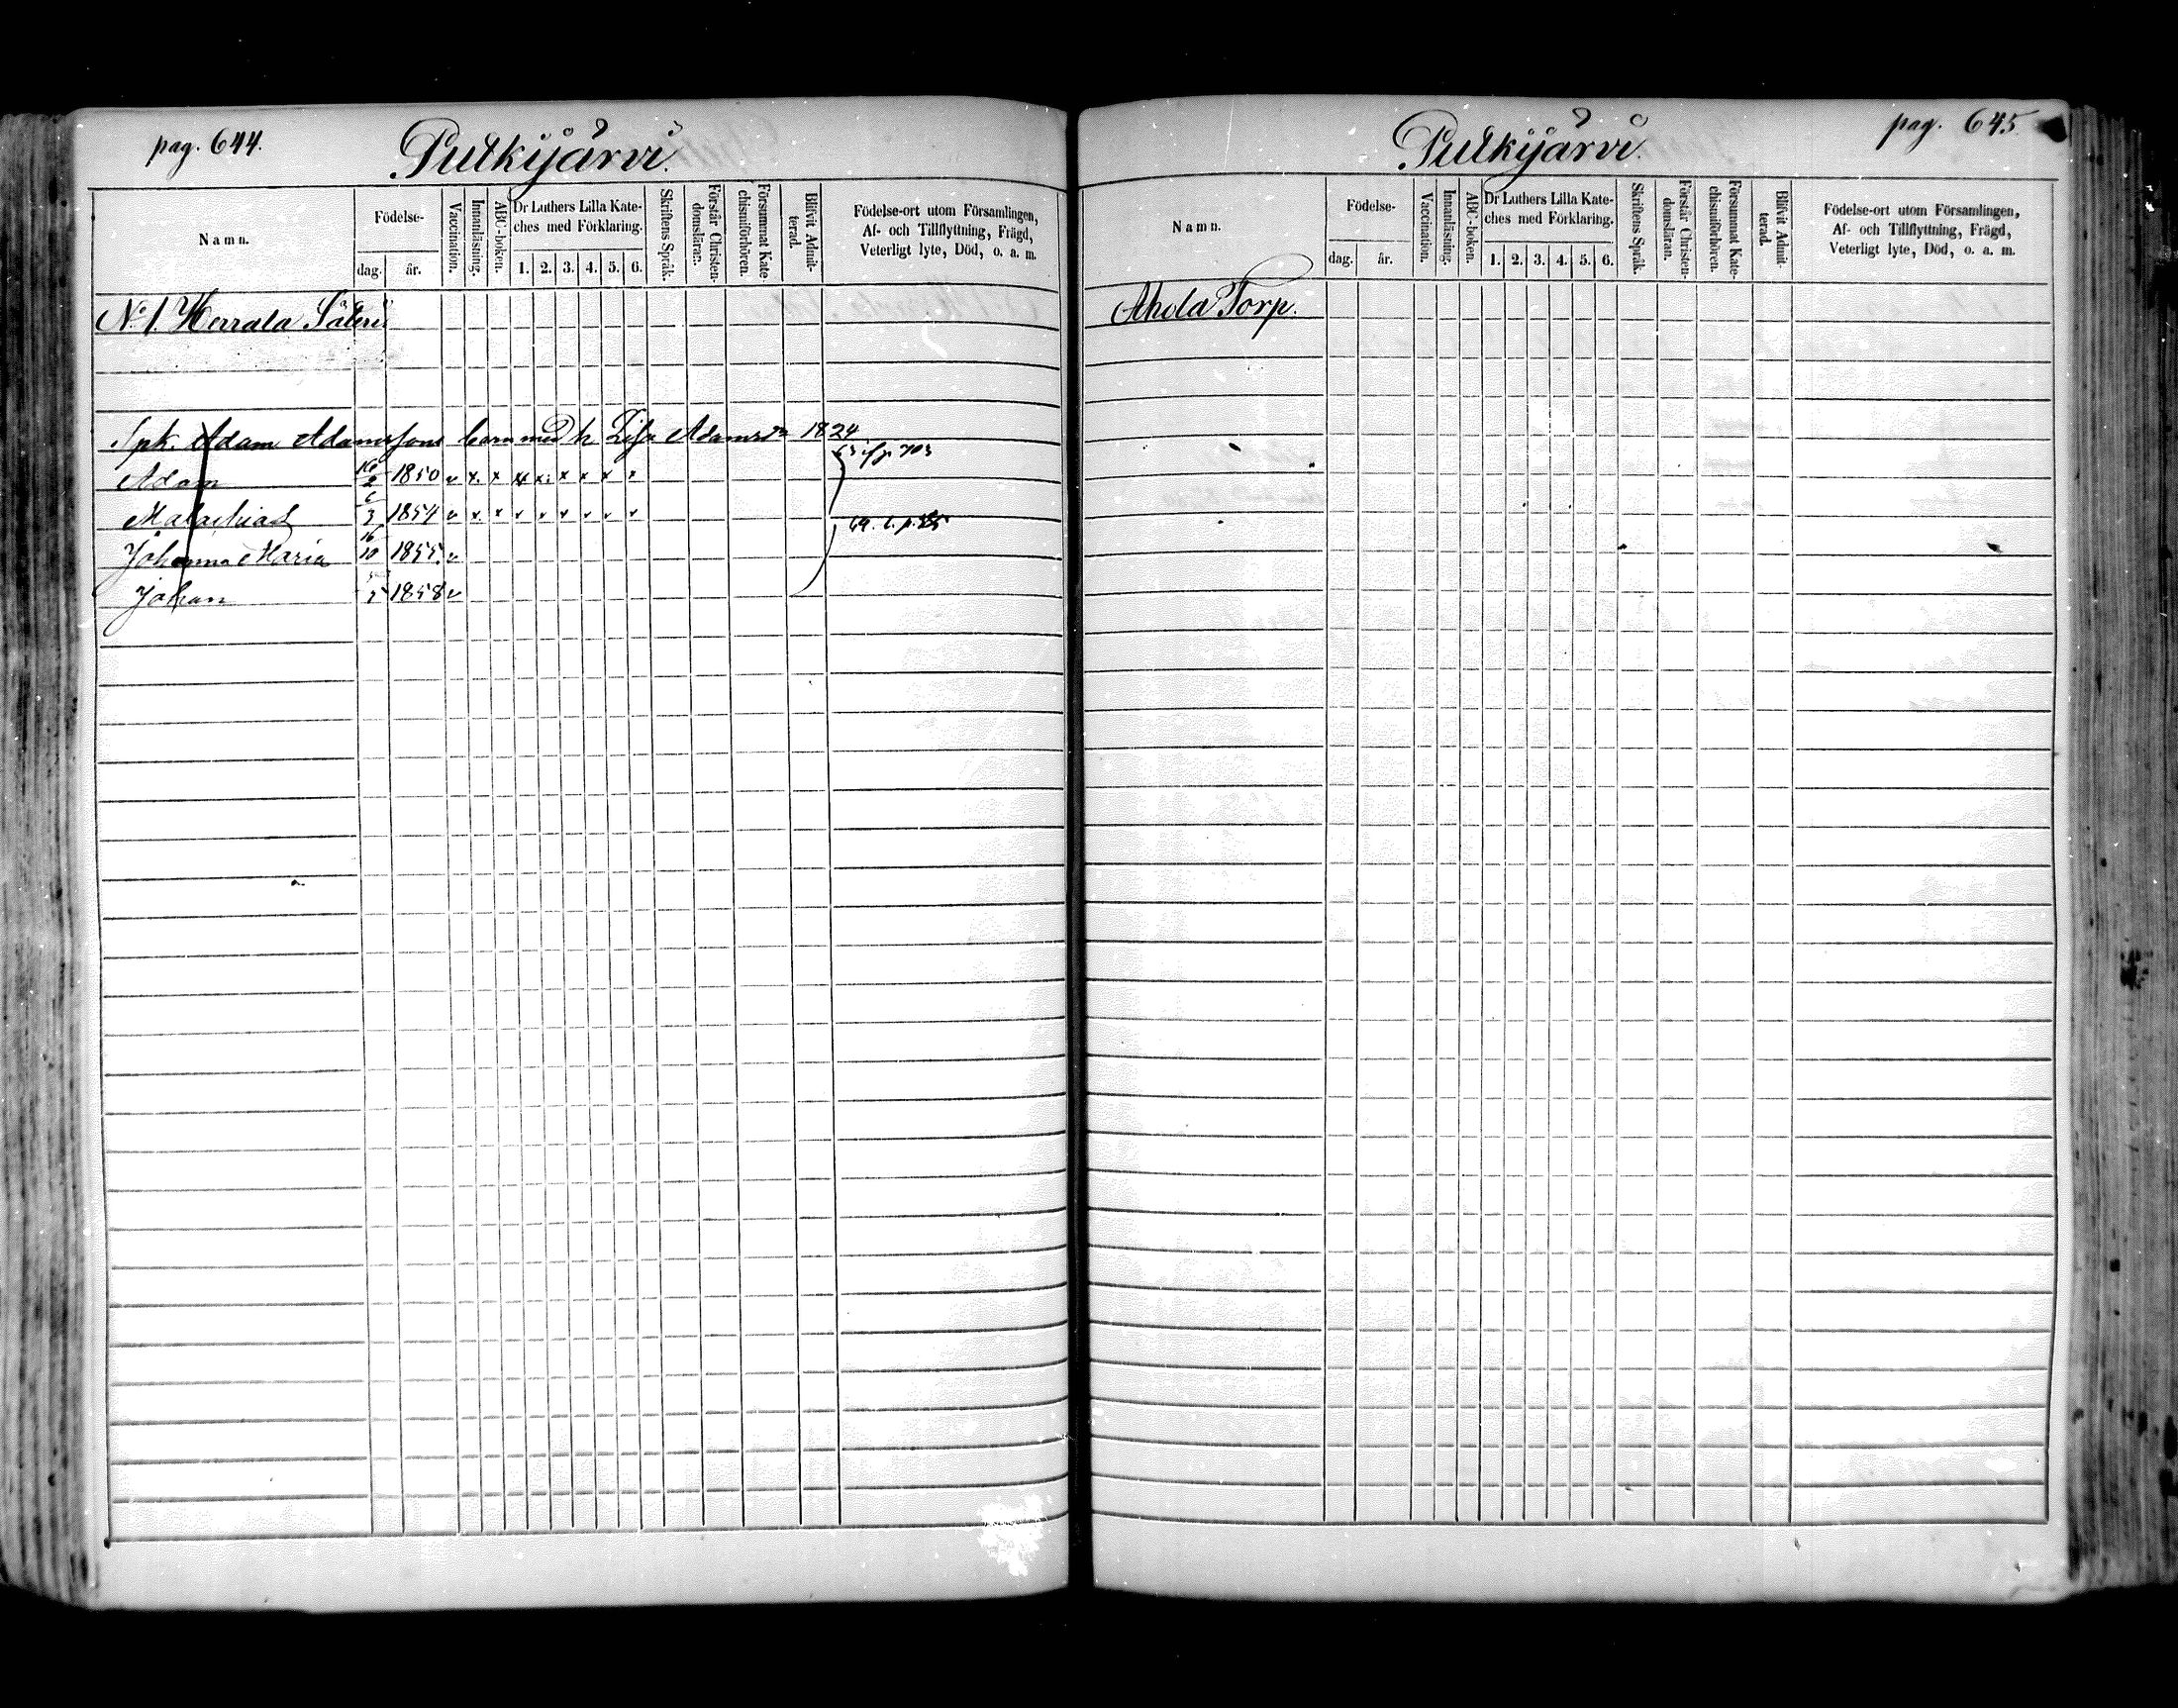 pag. 644.
Putkijärvi.
Namn.
Födelse-
dag.
år.
Vaccination.
Innanläsning.
ABC-boken.
Dr Luthers Lilla Kate-
ches med Förklaring.
1. 2. 3. 4. 5. 6.
Skriftens Språk.
Förstår Christen-
domsläran.
Försummat Kate-
chismiförhören.
Blifvit Admit-
terad.
Födelse-ort utom Församlingen,
Af- och Tillflyttning, Frägd,
Veterligt lyte, Död, o. a. m.
No 1. Herrala Säteri
Spk. Adam Adamsons barn med h Lisa Adamsdr 1824
Adam 16/2 1850 v x x x x x x x x
Malachias 6/3 1854 v v x v v v v v v
69. l. p.
Johanna Maria 16/10 1855 v
Johan 1858 v
pag. 645.
Putkijärvi.
Namn.
Födelse-
dag.
år.
Vaccination.
Innanläsning.
ABC-boken.
Dr Luthers Lilla Kate-
ches med Förklaring.
1. 2. 3. 4. 5. 6.
Skriftens Språk.
Förstår Christen-
domsläran.
Försummat Kate-
chismiförhören.
Blifvit Admit-
terad.
Födelse-ort utom Församlingen,
Af- och Tillflyttning, Frägd,
Veterligt lyte, Död, o. a. m.
Ahola Torp.